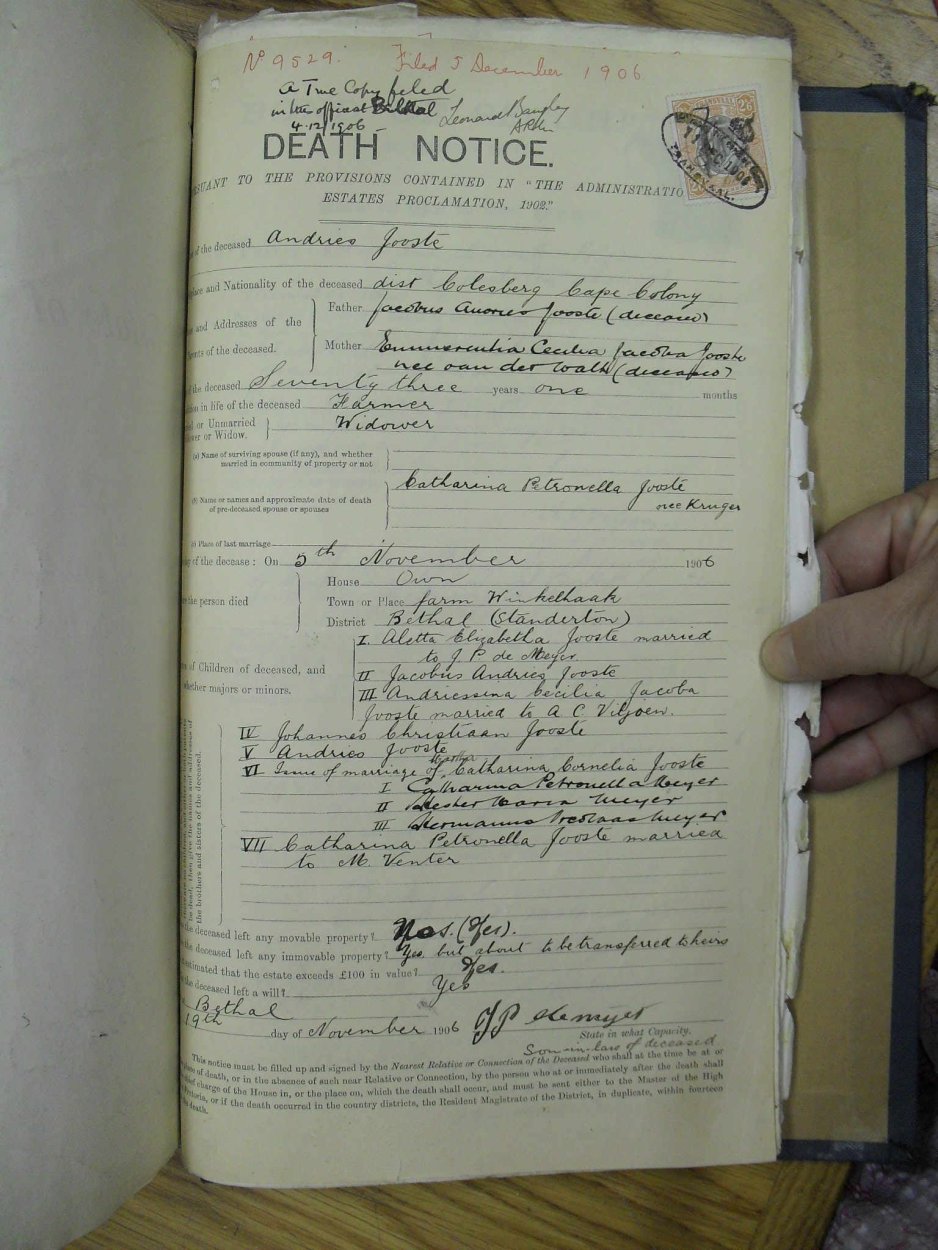 No 9529. Filed 5 December 1906
a True Copy filed
in the office at Bethal
4.12/1906
DEATH NOTICE.
SUANT TO THE PROVISIONS CONTAINED IN "THE ADMINISTRATIO
ESTATES PROCLAMATION, 1902."
of the deceased Andries Jooste
place and Nationality of the deceased dist Colesberg Cape Colony
Father Jacobus Andries Jooste (deceased)
and Addresses of the
Mother Emmerentia Cecilia Jacoba Jooste
nts of the deceased.
nee van der Walt (deceased)
of the deceased Seventy three years one months
tion in life of the deceased Farmer
ed or Unmarried Widower
wer or Widow.
(a) Name of surviving spouse (if any), and whether
married in community of property or not
Catharina Petronella Jooste
(b) Name or names and approximate date of death nee Kruger
of pre-deceased spouse or spouses
(c) Place of last marriage
of the decease: On 5th November 1906
House Own
re the person died Town or Place farm Winkelhaak
District Bethal (Standerton)
I. Aletta Elizabetha Jooste married
to J P de Meyer
of Children of deceased, and II Jacobus Andries Jooste
whether majors or minors. III Andriessina Cecilia Jacoba
Jooste married to A C Viljoen.
IV Johannes Christiaan Jooste
V Andries Jooste
VI Issue of marriage of Martha Catharina Cornelia Jooste
I Catharina Petronella Meyer
II Hester Maria Meyer
III Hermanus Nicolaas Meyer
VII Catharina Petronella Jooste married
to M. Venter
be dead, then give the names and addresses of
the brothers and sisters of the deceased.
the deceased left any movable property? Yes. (Yes).
the deceased left any immovable property? Yes but about to be transferred to heirs
estimated that the estate exceeds £100 in value? Yes.
the deceased left a will? Yes
Bethal
19th day of November 1906 J P de Meyer
State in what Capacity.
Son-in-law of deceased
This notice must be filled up and signed by the Nearest Relative or Connection of the Deceased who shall at the time be at or
place of death, or in the absence of such near Relative or Connection, by the person who at or immediately after the death shall
charge of the House in, or the place on, which the death shall occur, and must be sent either to the Master of the High
Pretoria, or if the death occurred in the country districts, the Resident Magistrate of the District, in duplicate, within fourteen
the death.